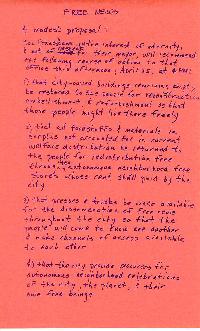 FREE NEWS
A modest proposal:
San Francisco in the interest of diversity,
& out of for their mayor, will recommend
the following course of action in that
office this afternoon, April 25, at 4 PM:
1) that city-owned buildings remaining empty
be restored to the people for
embellishment & refurbishment so that
those people might live there freely
2) that all foodstuffs & materials in
surplus not accounted for in current
welfare distribution be returned to
the people for redistribution free
through autonomous neighborhood free
stores whose rent shall be paid by the
city
3) that presses & trucks be made available
for the dissemination of free news
throughout the city so that the
people will come to know one another
& make channels of access available
to each other
4) that the city provide resources for
autonomous neighborhood celebrations
of the city, the planet, & their
own free beings